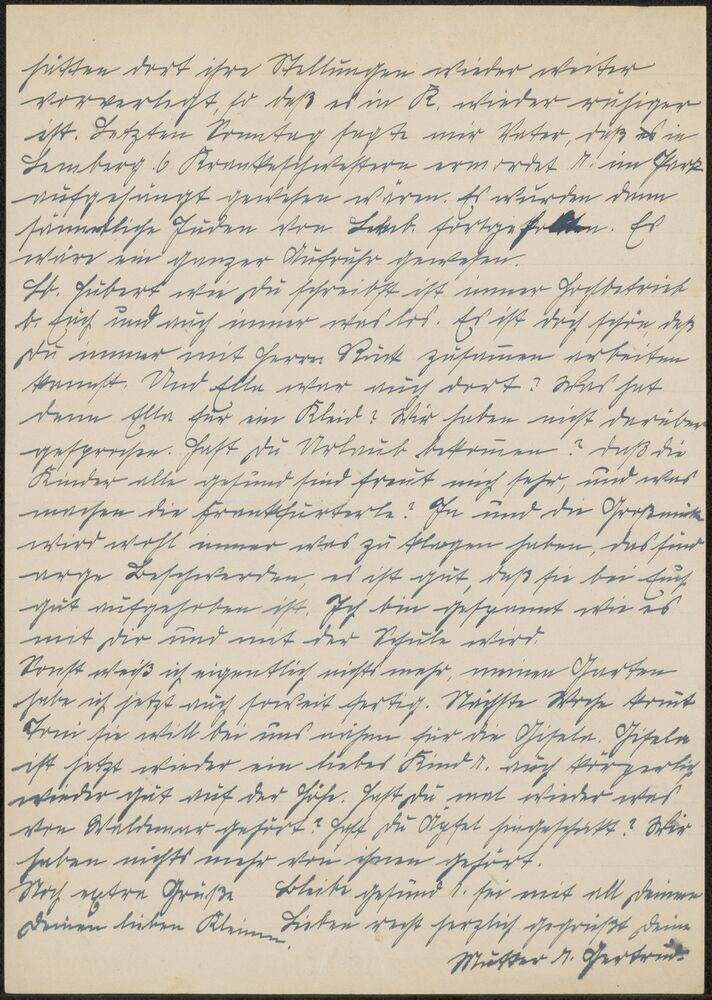 hätten dort ihre Stellungen wieder weiter
vorverlegt, so daß es in R. wieder ruhiger
ist. Letzten Sonntag sagte mir Vater, daß es in
Lemberg 6 Krankeschwestern ermordet u. im Park
aufgehängt gewesen wären. Es wurden dann
sämmtliche Juden von Lemb. fortge. Es
wäre ein ganzer Aufruhr gewesen.
Lb. Hubert wie Du schreibst ist immer Hochbetrieb
b. Euch und auch immer was los. Es ist doch schön daß
Du immer mit Herrn Rück zusammen arbeiten
kannst. Und Ella war auch dort? Was hat
denn Ella für ein Kleid? Wir haben nicht darüber
gesprochen. Hast Du Urlaub bekommen? daß die
Kinder alle gesund sind freut mich sehr, und was
machen die Frankfurterle? Ja und die Großmutter
wird wohl immer was zu klagen haben, das sind
arge Beschwerden, es ist gut, daß sie bei Euch
gut aufgehoben ist. Ich bin gespannt wie es
mit Dir und mit der Schule wird.
Sonst weiß ich eigentlich nichts mehr, meinen Garten
habe ich jetzt auch soweit fertig. Nächste Woche kommt
Toni sie will bei uns nähen für die Gisela. Gisela
ist jetzt wieder ein liebes Kind u. auch körperlich
wieder gut auf der Höhe. Hast Du mal wieder was
von Waldemar gehört? Hast Du Äpfel hingeschickt? Wir
haben nichts mehr von ihnen gehört.
Noch extra Grüße Bleibe gesund u. sei mit all Deinen
Deinen lieben Kleinen. Lieben recht herzlich gegrüßt Deine
Mutter u. Gertrud.